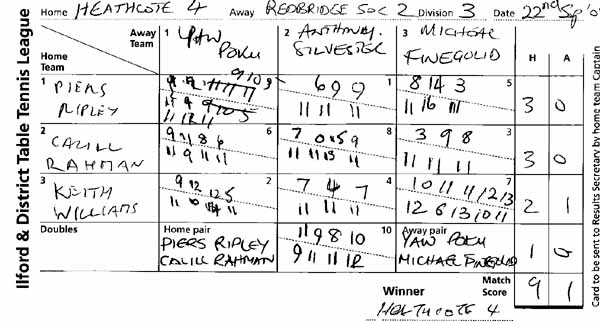 Ilford & District Table Tennis League
Home HEATHCOTE 4 Away REDBRIDGE SOC 2 Division 3 Date 22nd
Away Team 1 YAW POKU 2 ANTHONY SILVESTER 3 MICHEAL FINEGOLD H A
Home Team
1 PIERS RIPLEY
6 9 9 1
11 11 11
8 14 3 5
11 16 11
3 0
2 CALILL RAHMAN
9 11 8 6 6
11 9 11 11
7 8
3 9 8 3
11 11 11
3 0
3 KEITH WILLIAMS
9 12 12 5 2
7 4 7 4
11 11 11
10 11 11 12 13 7
12 6 13 10 11
2 1
Doubles
Home pair
PIERS RIPLEY
CALILL RAHMAN
11 9 8 10 10
9 11 11 12
Away pair
YAW POKU
MICHAEL FINEGOLD
1 0
Winner
HEATHCOTE 4
Match Score 9 1
Card to be sent to Results Secretary by home team Captain